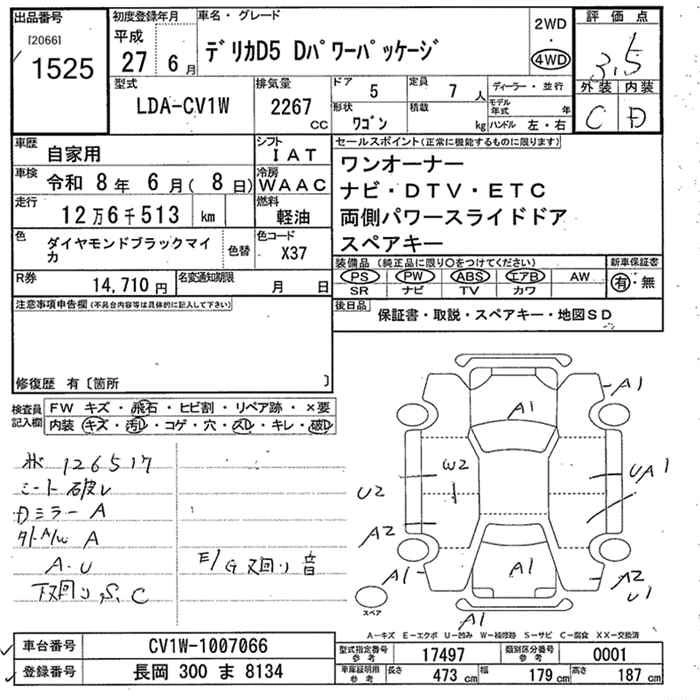 出品番号
[2066]
1525
初度登録年月
平成
27年 6月
車名・グレード
デリカD5 Dパワーパッケージ
2WD
・
4WD
評価点
3.5
外装 内装
C D
型式
LDA-CV1W
排気量
2267
CC
ドア 5
定員 7人
ディーラー・並行
形状 ワゴン
積載 kg
モデル年式 年
ハンドル 左・右
車歴
自家用
シフト
IAT
車検
令和 8年 6月(8日)
冷房
WAAC
走行
12万6千513 km
燃料
軽油
色
ダイヤモンドブラックマイカ
色替
色コード
X37
R券
14,710円
名変通知期限
月 日
セールスポイント(正常に機能するものに限ります)
ワンオーナー
ナビ・DTV・ETC
両側パワースライドドア
スペアキー
装備品 (純正品に限り○をつけてください)
PS PW ABS エアB AW
SR ナビ TV カワ
新車保証書
有・無
後日品
保証書・取説・スペアキー・地図SD
注意事項申告欄(不具合内容等は具体的に記入して下さい)
修復歴 有〔箇所 〕
検査員
記入欄
FW キズ・飛石・ヒビ割・リペア跡・×要
内装 キズ・汚れ・コゲ・穴・スレ・キレ・破レ
126517
シート破レ
Dミラー A
A
A・U
下廻り,S,C
E/G廻り 音
A1
A1
W2
U2
UA1
A2
A1
A1
A2
U1
A1
スペア
A-キズ E-エクボ U-凹み W-補修跡 S-サビ C-腐食 XX-交換済
車台番号
CV1W-1007066
登録番号
長岡 300 ま 8134
型式指定番号
参考
17497
類別区分番号
参考
0001
車庫証明用
参考
長さ 473 cm
幅 179 cm
高さ 187 cm